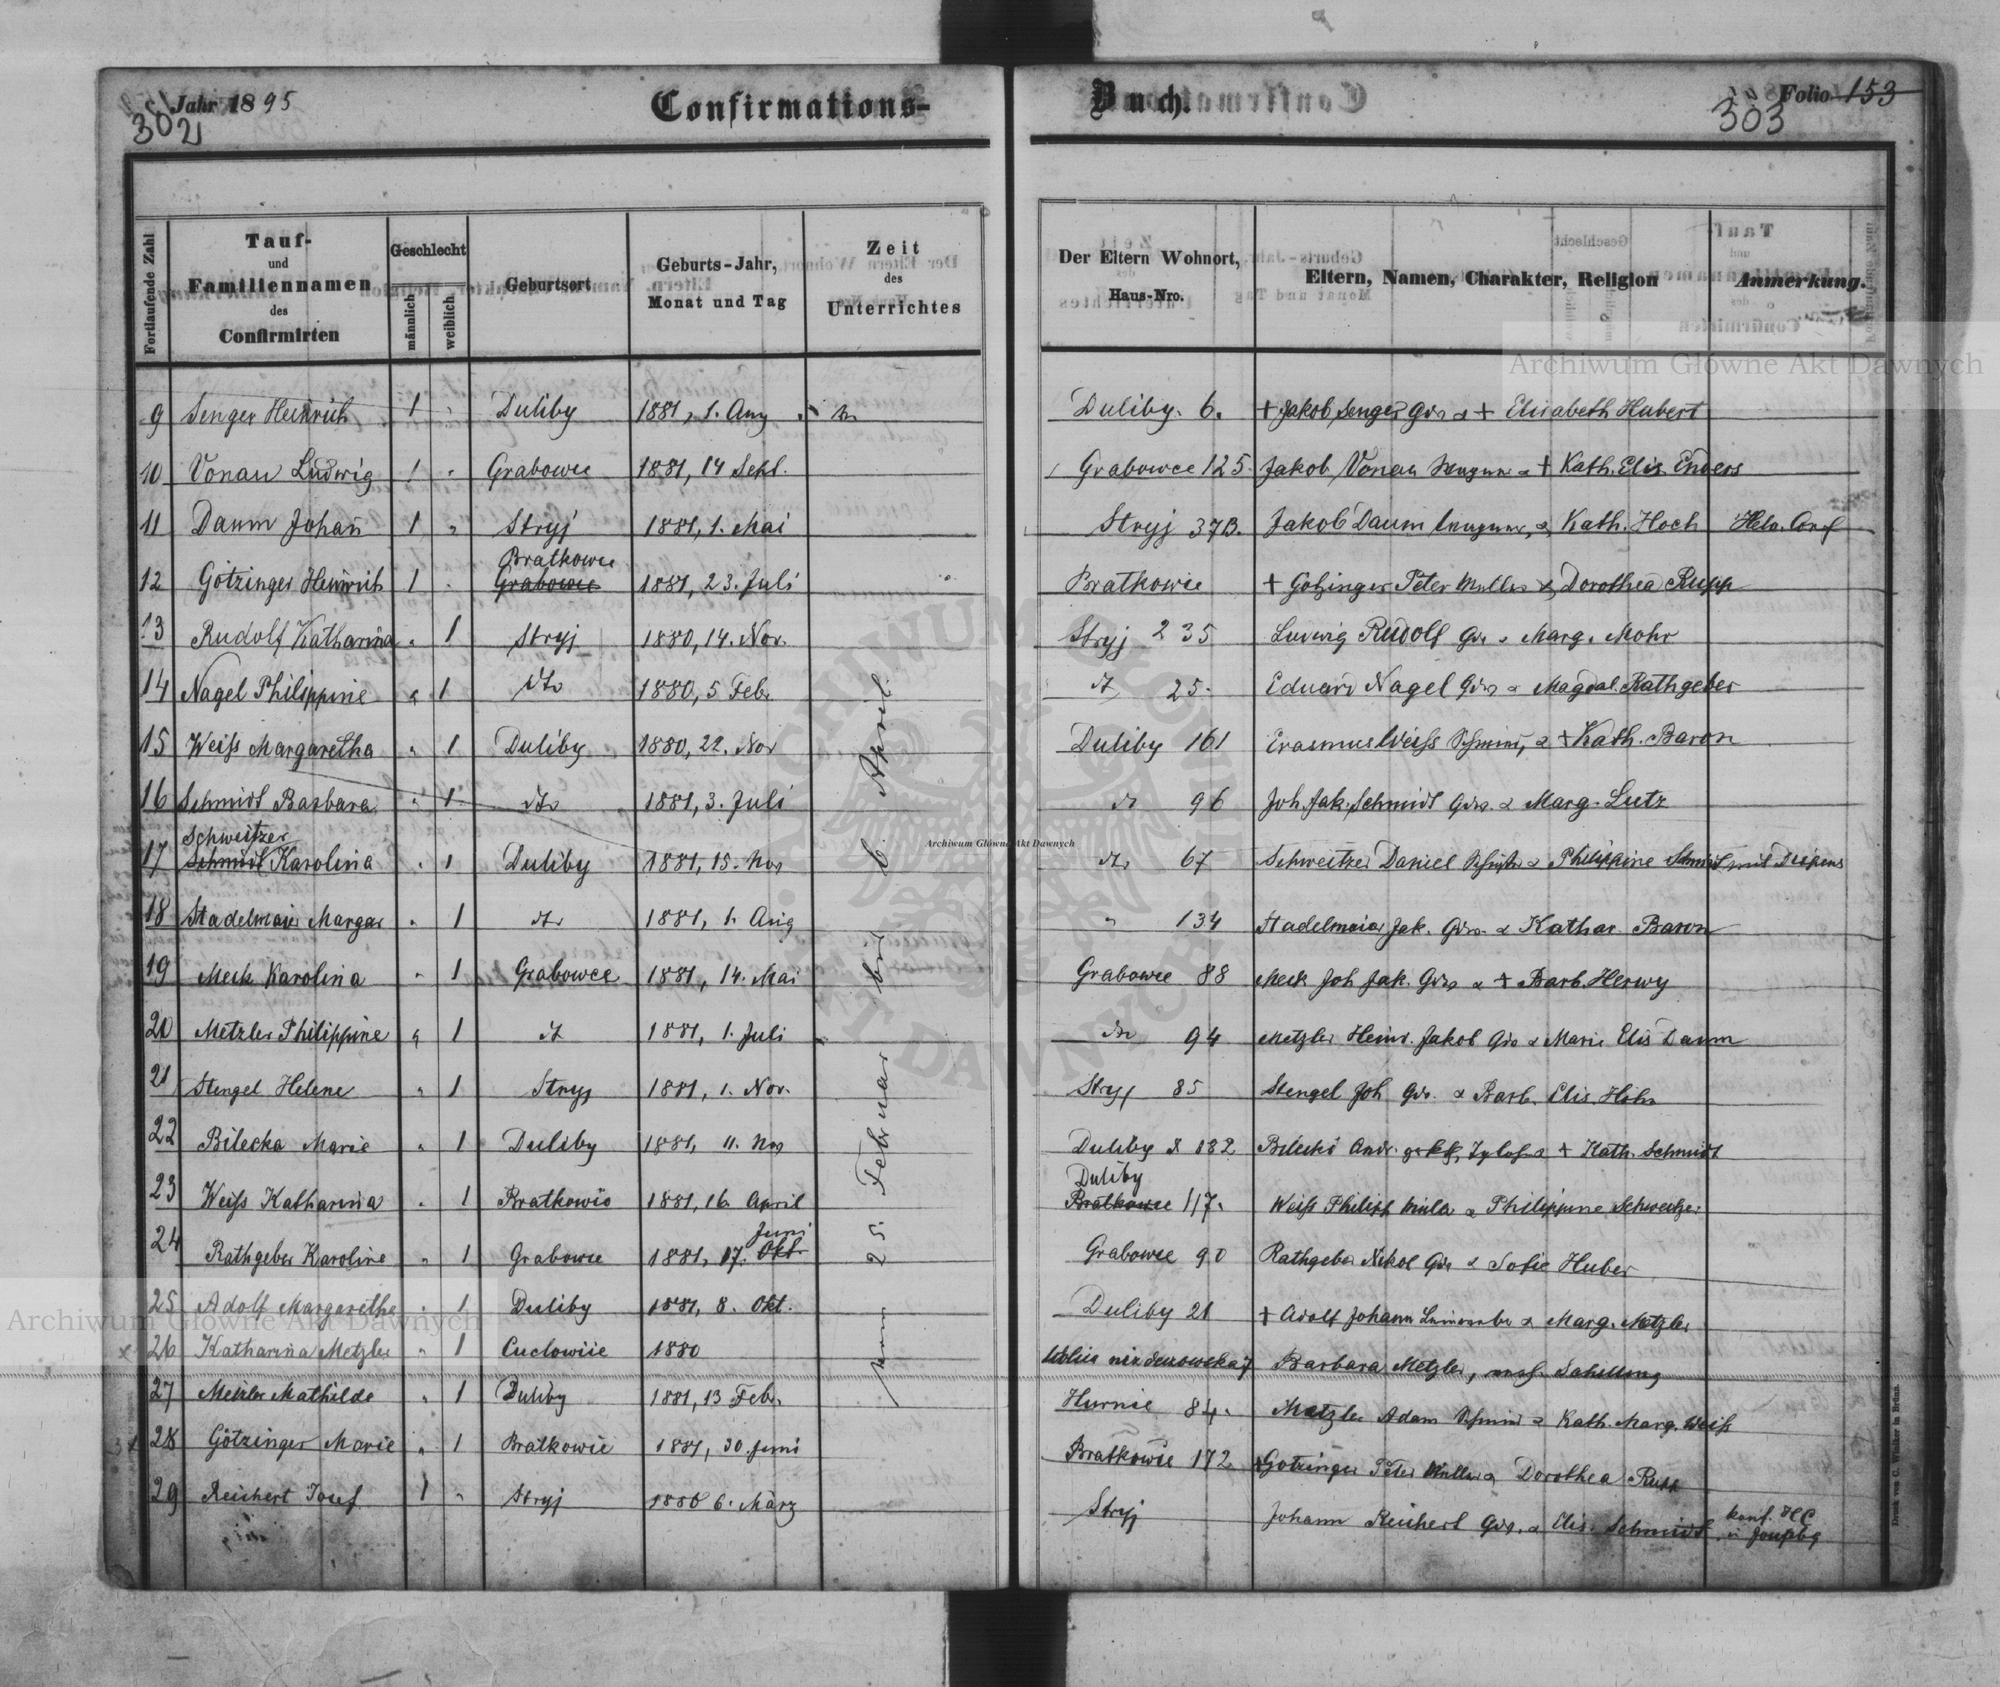 Jahr 1895
302
Confirmations-
Buch.
Folio 153
303
Fortlaufende Zahl
Tauf-
und
Familiennamen
des
Confirmirten
Geschlecht
männlich
weiblich
Geburtsort
Geburts-Jahr,
Monat und Tag
Zeit
des
Unterrichtes
Der Eltern Wohnort,
Haus-Nro.
Eltern, Namen, Charakter, Religion
Anmerkung.
9 Senger Heinrich 1 " Duliby 1881, 1. Aug Duliby. 6. + Jakob Senger Gdrs & + Elisabeth Hubert
10 Vonau Ludwig 1 " Grabowce 1881, 14 Sept. Grabowce 125. Jakob Vonau & + Kath. Elis. Enders
11 Daum Johan̄ 1 " Stryj 1881, 1. Mai Stryj 37B. Jakob Daum & Kath. Hoch Helv. Conf
Bratkowce
12 Götzinger Heinrich 1 " Grabowce 1881, 23. Juli Bratkowce + Götzinger Peter Müller & Dorothea Rupp
13 Rudolf Katharina " 1 Stryj 1880, 14. Nov. Stryj 235 Ludwig Rudolf Gdr & Marg. Mohr
14 Nagel Philippine " 1 dto 1880, 5 Feb. dt 25. Eduard Nagel Gdrs & Magdal. Rathgeber
15 Weiß Margaretha " 1 Duliby 1880, 22. Nov Duliby 161 Erasmus Weiß Schmied, & + Kath. Baron
16 Schmidt Barbara " 1 dto 1881, 3. Juli dt 96 Joh. Jak. Schmidt Gdrs. & Marg. Lutz
Schweitzer
17 Schmidt Karolina " 1 Duliby 1881, 15. Nov dto 67 Schweitzer Daniel & Philippine Schmidt mit Dispens
18 Stadelmaier Margar " 1 dto 1881, 1. Aug " 134 Stadelmaier Jak. Gdrs. & Kathar. Baron
19 Meck Karolina " 1 Grabowce 1881, 14. Mai Grabowce 88 Meck Joh Jak. Gdrs & + Barb. Herwy
20 Metzler Philippine " 1 dt 1881, 1. Juli dto 94 Metzler Heinr. Jakob Gdrs & Marie Elis Daum
21 Stengel Helene " 1 Stryj 1881, 1. Nov. Stryj 85 Stengel Joh Gdr. & Barb. Elis. Höhn
22 Bilecka Marie " 1 Duliby 1881, 11. Nov Duliby 182 Bilecki Andr. & + Kath. Schmidt
Duliby
23 Weiß Katharina " 1 Bratkowce 1881, 16. April Bratkowce 117. Weiß Philipp Müller & Philippine Schweitzer
Juni
24 Rathgeber Karoline " 1 Grabowce 1881, 17. Okt Grabowce 90 Rathgeber Nikol Gdrs & Sofie Huber
25 Adolf Margarethe " 1 Duliby 1881, 8. Okt. Duliby 21 + Adolf Johann & Marg. Metzler
26 Katharina Metzler " 1 1880 Barbara Metzler,
27 Metzler Mathilde " 1 Duliby 1881, 13 Feb. Hurnie 84. Metzler Adam Schmied & Kath. Marg. Weiß
28 Götzinger Marie " 1 Bratkowce 1881, 30. Juni Bratkowce 172 + Götzinger Peter Müller & Dorothea Rupp
29 Reichert Josef 1 " Stryj 1880 6. März Stryj Johann Reichert Gdrs. & Elis. Schmidt konf. HC
25. Februar bis 6. April
Druck von C. Winiker in Brünn.
Archiwum Główne Akt Dawnych
Archiwum Główne Akt Dawnych
Archiwum Główne Akt Dawnych
ARCHIWUM GŁÓWNE AKT DAWNYCH